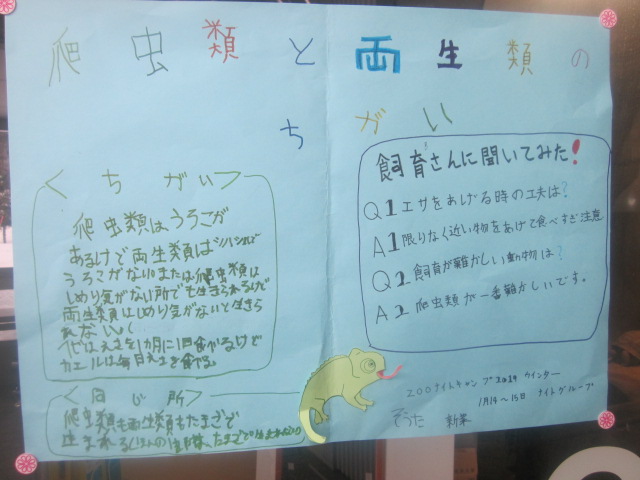 爬虫類と両生類の
ちがい
<ちがい>
爬虫類はうろこが
あるけど両生類は
うろこがないまたは爬虫類は
しめり気がない所でも生きられるけど
両生類はしめり気がないと生きら
れない
カエルは毎日えさを食べる。
<同じ所>
爬虫類も両生類もたまごで
飼育さんに聞いてみた!
Q1エサをあげる時の工夫は?
A1限りなく近い物をあげて食べすぎ注意
Q2飼育が難かしい動物は?
A2爬虫類が一番難かしいです。
ZOOナイトキャンプ2024 ウインター
1月14〜15日 ナイトグループ
そうた